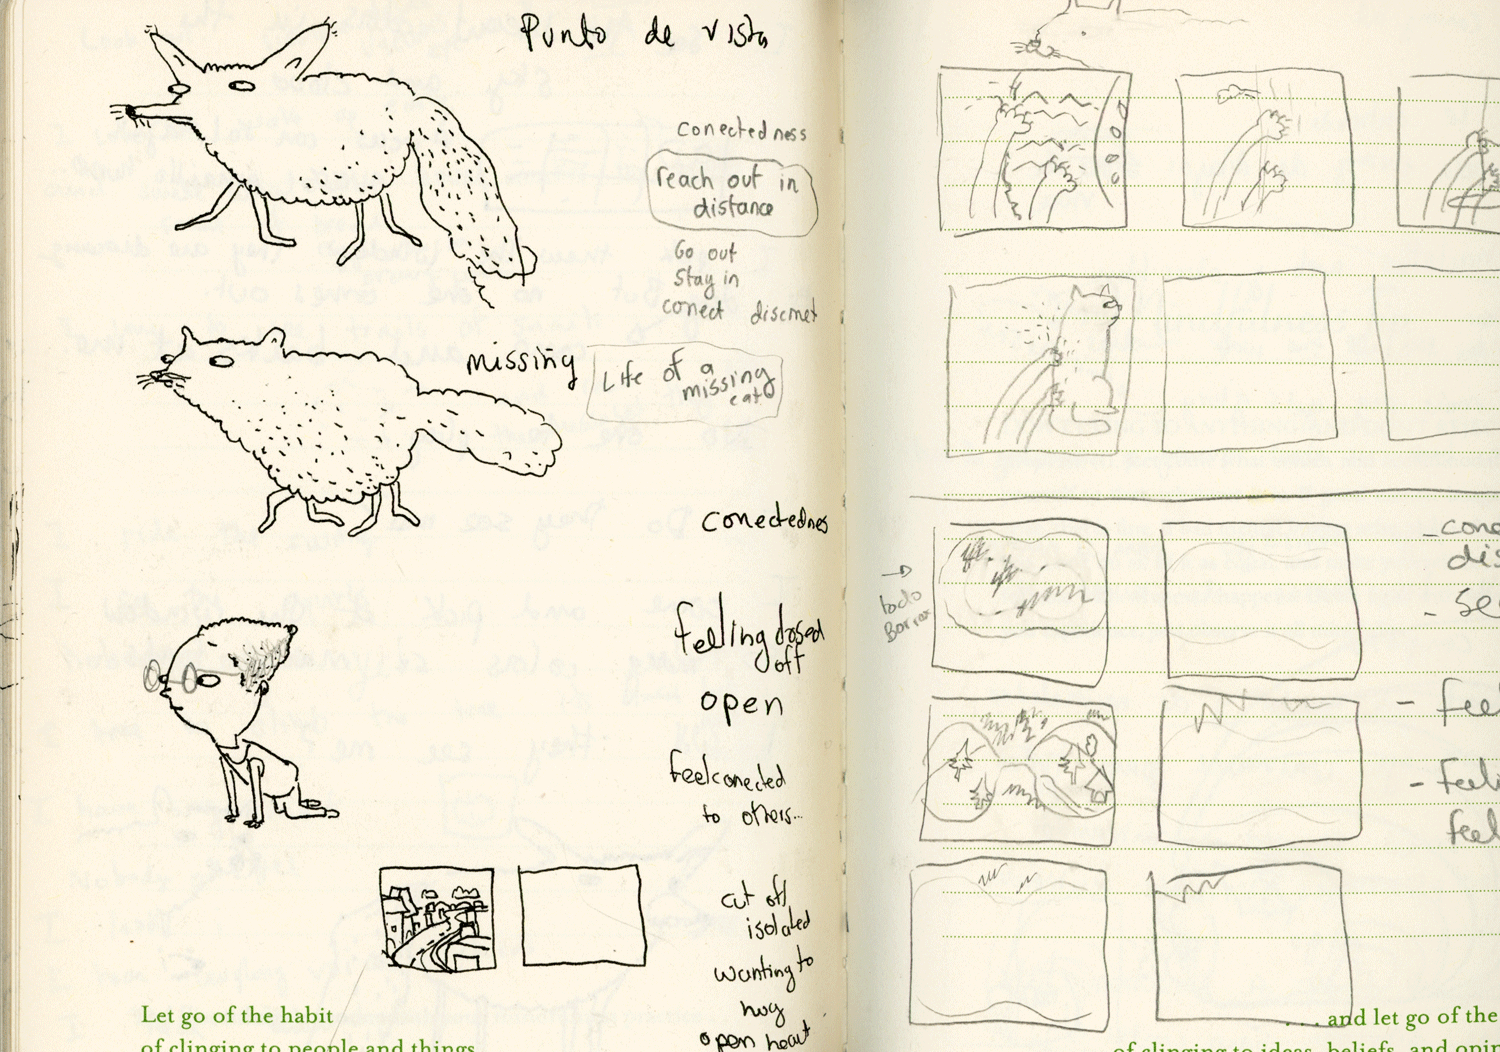 Punto de vista
conectedness
reach out in
distance
Go out
stay in
conect disconet
missing
Life of a
missing
cat
conectednes
feeling closed
off
open
feel conected
to others...
cut off
isolated
wanting to
hug
open heart
Let go of the habit
of clinging to people and things
→
todo
Borrar
- cone
dis
- see
- feel
- Feeli
feel
.... and let go of the
of clinging to ideas, beliefs, and opin